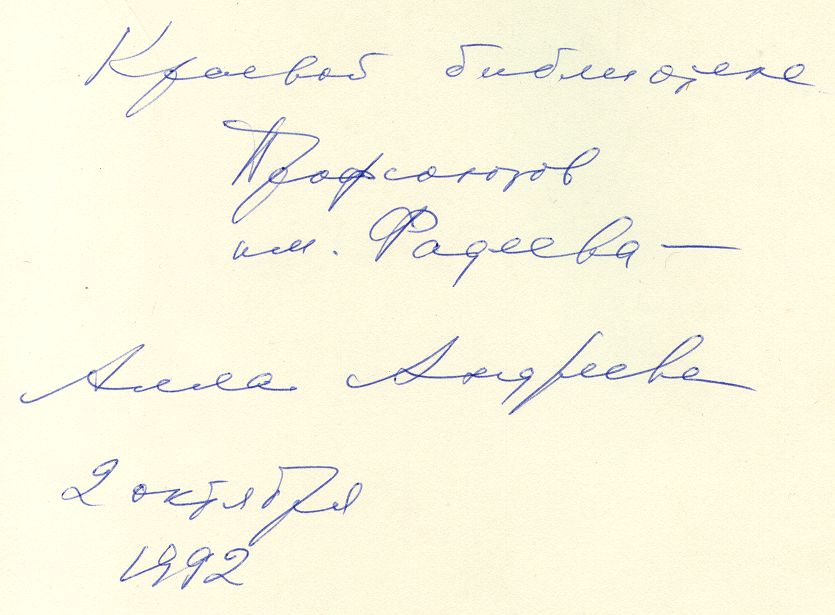 Краевой библиотеке
Профсоюзов
им. Фадеева —
Алла Андреева
2 октября
1992